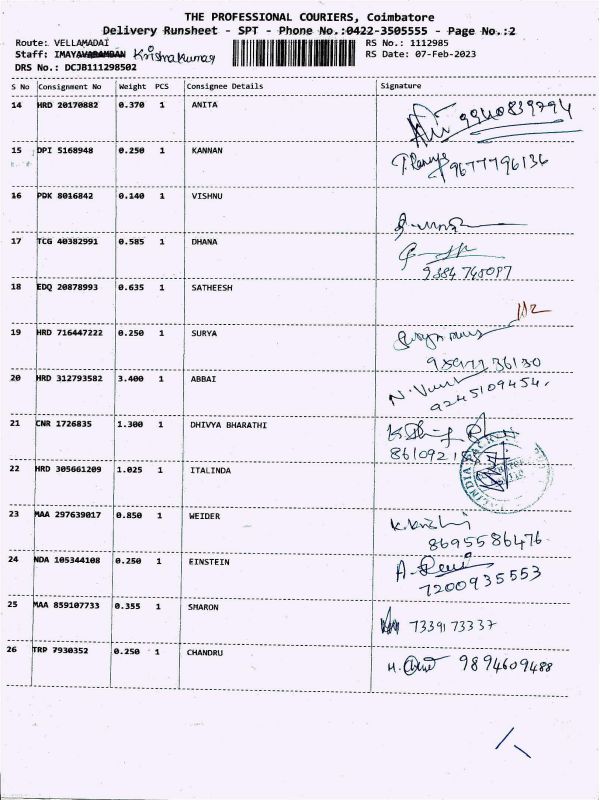 THE PROFESSIONAL COURIERS, Coimbatore
Delivery Runsheet - SPT - Phone No.:0422-3505555 - Page No.:2
Route: VELLAMADAI
RS No.: 1112985
Staff: Krishnakumar
RS Date: 07-Feb-2023
DRS No.: DCJB111298502
S No Consignment No Weight PCS Consignee Details Signature
14 HRD 20170882 0.370 1 ANITA
15 DPI 5168948 0.250 1 KANNAN 9677796136
16 PDK 8016842 0.140 1 VISHNU
17 TCG 40382991 0.585 1 DHANA
18 EDQ 20878993 0.635 1 SATHEESH
19 HRD 716447222 0.250 1 SURYA
20 HRD 312793582 3.400 1 ABBAI
9245109454
21 CNR 1726835 1.300 1 DHIVYA BHARATHI
22 HRD 305661209 1.025 1 ITALINDA
23 MAA 297639017 0.850 1 WEIDER
8695586476
24 NDA 105344108 0.250 1 EINSTEIN
7200935553
25 MAA 859107733 0.355 1 SMARON 7339173337
26 TRP 7930352 0.250 1 CHANDRU 9894609488